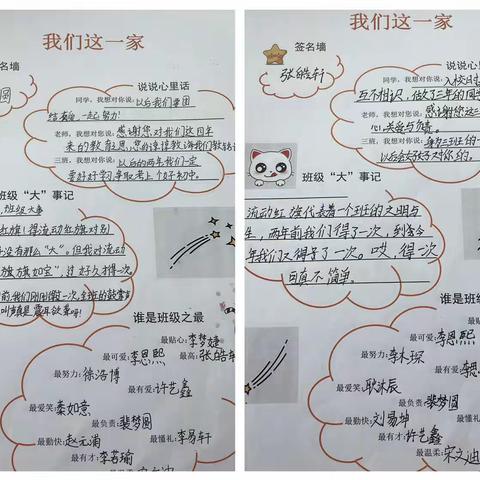 我们这一家
名墙
说说心里话
同学，我想对你说：以后我们要团
结友爱，一起努力！
老师，我想对您说：感谢您对我们这四年
来的教育之恩，您的谆谆教诲我们都铭记
三班，我想对你说：以后的两年我们一定
要好好学习争取考上个好初中。
班级“大”事记
班级大事
红旗！得流动红旗对别
没有那么“大”。但我对流动
旗如宝”，过好久才得一次
前，我们刚刚得一次，全班的鼓掌
叫声真是震耳欲聋呀！
谁是班级之最
最贴心：李梦婕
最可爱：李恩熙
最高：张皓轩
最努力：徐洺博
最有爱：许艺鑫
最爱笑：秦如意
最负责：裴梦圆
最勤快：赵元浦
最懂礼：李易轩
最有才：李若瑜
我们这一家
签名墙
张皓轩
说说心里话
同学，我想对你说：入校时
互不相识，做了三年的同学
老师，我想对您说：感谢您这三
心，关爱与负责。
三班，我想对你说：身为三班的一
以后会好好对你的。
班级“大”事记
流动红旗代表着一个班的文明与
生，两年前我们得了一次，到当今
年我们又得了一次。哎，得一次
可真不简单。
谁是班级之最
李恩熙
最可爱：
最努力：李木琛
最有爱：
最爱笑：耿沐辰
最负责：裴梦圆
最勤快：刘易坤
最懂礼：
最有才：许艺鑫
最温柔：宋文迪